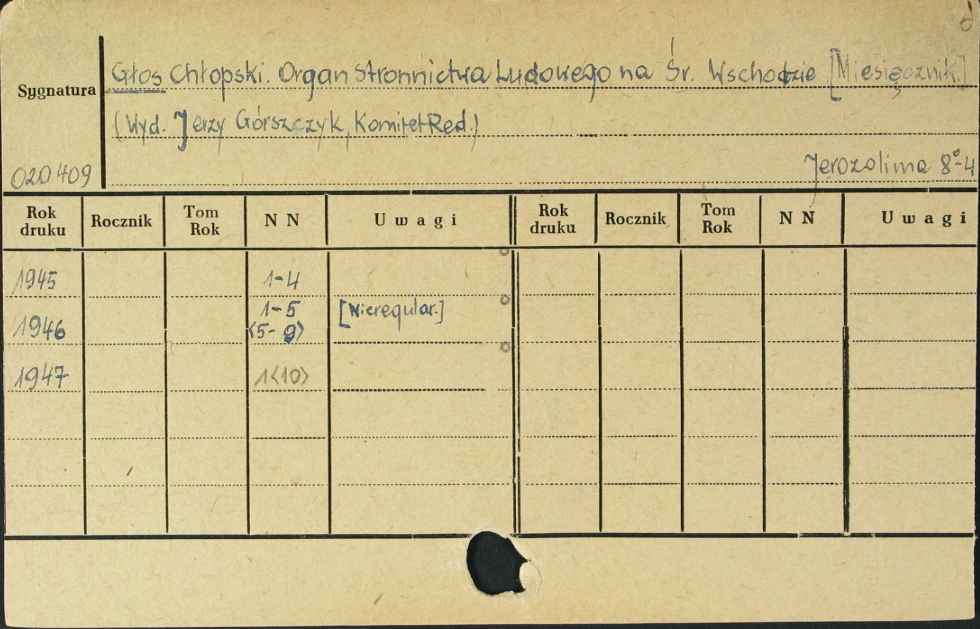 Sygnatura
Głos Chłopski. Organ Stronnictwa Ludowego na Śr. Wschodzie [Miesięcznik.]
(Wyd. Jerzy Górszczyk, Komitet Red.)
020409
Jerozolima 8°-4
Rok druku Rocznik Tom Rok NN Uwagi Rok druku Rocznik Tom Rok NN Uwagi
1945 1-4
1-5 [Nieregular.]
1946 <5-9>
1947 1<10>